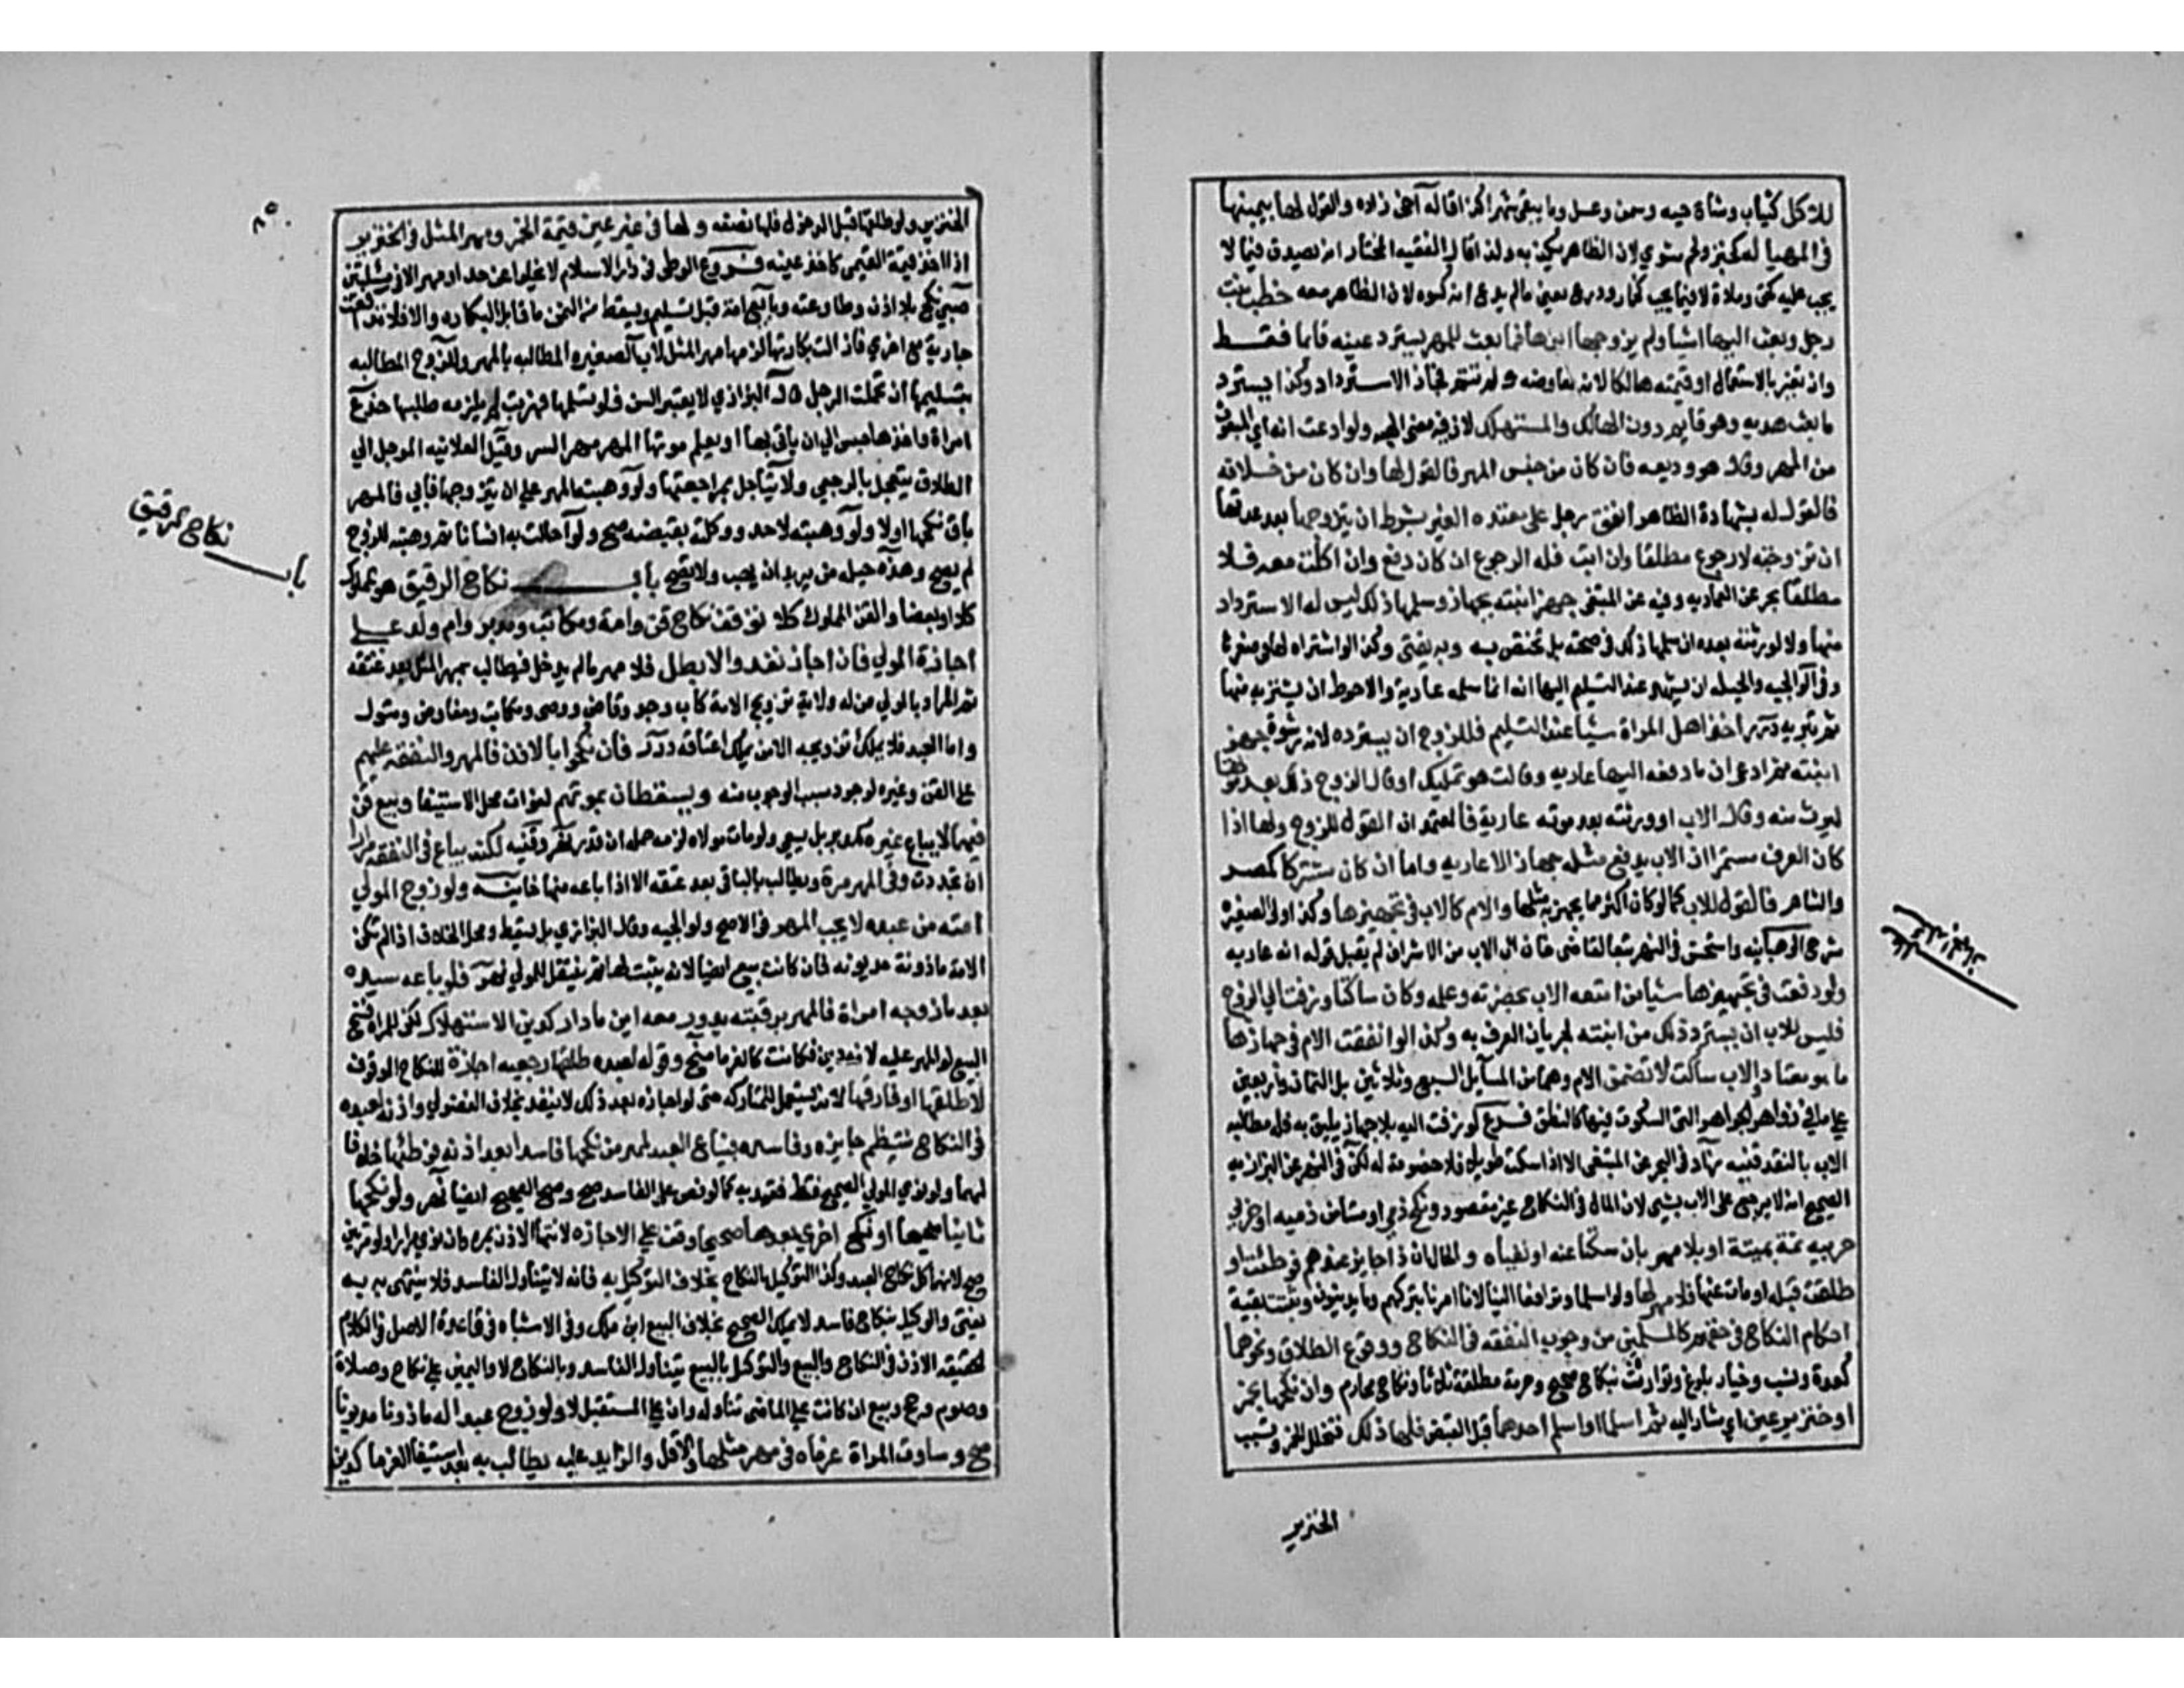 للاكل كثياب وشاة حيه وسمن وعسل وما يبقى شهرا اخي زاده والقول لها بيمينها
في المهيا له كخبز ولحم مشوي لان الظاهر يكذبه ولذا قال الفقيه المختار انه يصدق فيما لا
يجب عليه كخف وملاة لا فيما يجب كخمار ودرع يعني مالم يدع انه كسوه لان الظاهر معه خطب بنت
رجل وبعث اليها اشيا ولم يزوجها ابوها فما بعث للمهر يسترد عينه قايما فقط
وان تغير بالاستعمال او قيمته هالكا لانه معاوضه ولم تتم فجاز الاسترداد وكذا يسترد
ما بعث هديه وهو قايم دون الهالك والمستهلك لان فيه معنى الهبه ولو ادعت انه اي المبعوث
من المهر وقال هو وديعه فان كان من جنس المهر فالقول لها وان كان من خلافه
فالقول له بشهادة الظاهر انفق رجل على معتدة الغير بشرط ان يتزوجها بعد عدتها
ان تزوجته لا رجوع مطلقا وان ابت فله الرجوع ان كان دفع وان اكلت معه فلا
مطلقا بحر عن العماديه وفيه عن المبتغى جهز ابنته بجهاز وسلمها ذلك ليس له الاسترداد
منها ولا لورثته بعده ان سلمها ذلك في صحته بل تختص به وبه يفتى وكذا لو اشتراه لها في صغرها
وفي الولوالجيه والحيله ان يشهد عند التسليم اليها انه انما سلمه عارية والاحوط ان يشتريه منها
ثم تبريه درر اخذ اهل المراة شيئا عند التسليم فللزوج ان يسترده لانه رشوة جهز
ابنته ثم ادعى ان ما دفعه اليها عاريه وقالت هو تمليك او قال الزوج ذلك بعد موتها
ليرث منه وقال الاب او ورثته بعد موته عارية فالمعتمد ان القول للزوج ولها اذا
كان العرف مستمرا ان الاب يدفع مثله جهازا لا عاريه واما ان كان مشتركا كمصر
والشام فالقول للاب كما لو كان اكثر مما يجهز به مثلها والام كالاب في تجهيزها وكذا ولي الصغيره
شرح الوهبانيه واستحسن في النهر تبعا لقاضي خان ان الاب من الاشراف لم يقبل قوله انه عاريه
ولو دفعت في تجهيزها شيئا من امتعه الاب بحضرته وعلمه وكان ساكتا وزفت الى الزوج
فليس للاب ان يسترد ذلك من ابنته لجريان العرف به وكذا لو انفقت الام في جهازها
ما هو معتاد والاب ساكت لا تضمن الام وهما من المسايل السبع وثلاثين بل الثمان واربعين
على ما في زواهر الجواهر التي السكوت فيها كالنطق فرع لو زفت اليه بلا جهاز يليق به فله مطالبه
الاب بالنقد قنيه زاد في البحر عن المبتغى الا اذا سكت طويلا فلا خصومة له لكن في النهر عن البزازيه
الصحيح انه لا يرجع على الاب بشي لان المال في النكاح غير مقصود نكح ذمي او مستامن ذميه او حربي
حربيه ثمة بميتة او بلا مهر بان سكتا عنه او نفياه والحال ان ذا جايز عندهم فوطئت او
طلقت قبله او مات عنها فلا مهر لها ولو اسلما وترافعا الينا لانا امرنا بتركهم وما يدينون وتثبت بقية
احكام النكاح في حقهم كالمسلمين من وجوب النفقه في النكاح ووقوع الطلاق ونحوهما
كعدة ونسب وخيار بلوغ وتوارث بنكاح صحيح وحرمة مطلقة ثلاثا ونكاح محارم وان نكحها بخمر
او خنزير عين اي مشار اليه ثم اسلما او اسلم احدهما قبل القبض فلها ذلك فتخلل الخمر وتسيب
الخنزير
الخنزير ولو طلقها قبل الدخول فلها نصفه ولها في غير عين قيمة الخمر ومهر المثل في الخنزير
اذا اخذ قيمة القيمي كاخذ عينه فروع الوطي في دار الاسلام لا يخلوا عن حد او مهر الا في مسئلتين
صبي نكح بلا اذن وطاوعته وبايع امته قبل تسليم ويسقط من الثمن ما قابل البكاره والا فلا تدافعت
جارية مع اخرى فازالت بكارتها لزمها مهر المثل لاب الصغيره المطالبه بالمهر وللزوج المطالبه
بتسليمها ان تحملت الرجل قال البزازي لا يعتبر السن فلو تسلمها فهربت لم يلزمه طلبها خدع
امراة واخذها حبس الى ان ياتي بها او يعلم موتها المهر مهر السر وقيل العلانيه الموجل الى
الطلاق يتعجل بالرجعي ولا يتاجل بمراجعتها ولو وهبته المهر على ان يتزوجها فابى فالمهر
باق نكحها اولا ولو وهبته لاحد ووكلته بقبضه صح ولو احالت به انسانا ثم وهبته للزوج
لم يصح وهذه حيله من يريد ان يهب ولا يصح باب نكاح الرقيق هو المملوك
كلا او بعضا والقن المملوك كلا توقف نكاح قن وامة ومكاتب ومدبر وام ولد على
اجازة المولي فان اجاز نفذ والا بطل فلا مهر مالم يدخل فيطالب بمهر المثل بعد عتقه
ثم المراد بالمولي من له ولاية تزويج الامة كاب وجد وقاض ووصي ومكاتب ومفاوض ومتول
واما العبد فلا يملك تزويجه الا من يملك اعتاقه درر فان نكحوا بالاذن فالمهر والنفقه عليهم
على القن وغيره لوجود سبب الوجوب منه ويسقطان بموتهم لفوات محل الاستيفا وبيع قن
فيهما لا يباع غيره كمدبر بل يسعى ولو مات مولاه لزمه جمله ان قدر نهر وقنيه لكنه يباع في النفقه مرارا
ان تجددت وفي المهر مرة ويطالب بالباقي بعد عتقه الا اذا باعه منها خانيه ولو زوج المولي
امته من عبده لا يجب المهر في الاصح ولوالجيه وقال البزازي بل يسقط ومحل الخلاف اذا لم تكن
الامة ماذونة مديونه فان كانت بيع ايضا لانه يثبت لها ثم ينتقل للمولي نهر فلو باعه سيده
بعد ما زوجه امراة فالمهر برقبته يدور معه اين ما دار كدين الاستهلاك لكن للمراة فسخ
البيع لو المهر عليه لانه دين فكانت كالغرما منح وقوله لعبده طلقها رجعيه اجازة للنكاح الموقوف
لا طلقها او فارقها لانه يستعمل للمتاركه حتى لو اجازه بعد ذلك لا ينفذ بخلاف الفضولي واذنه لعبده
في النكاح ينتظم جايزه وفاسده فيباع العبد لمهر من نكحها فاسدا بعد اذنه فوطئها خلافا
لهما ولو نوى المولي الصحيح فقط تقيد به كما لو نص على الفاسد صح وصح الصحيح ايضا نهر ولو نكحها
ثانيا صحيحا او نكح اخرى بعدها صحيحا وقف على الاجازه لانتها الاذن بمرة وان نوى مرارا ولو مرتين
صح لانهما كل نكاح العبد وكذا التوكيل بالنكاح بخلاف التوكيل به فانه لا يتناول الفاسد فلا ينتهى به به
يفتى والوكيل بنكاح فاسد لا يملك الصحيح بخلاف البيع ابن ملك وفي الاشباه في قاعدة الاصل في الكلام
الحقيقه الاذن في النكاح والبيع والتوكيل بالبيع يتناول الفاسد وبالنكاح لا واليمين على نكاح وصلاة
وصوم وحج وبيع ان كانت على الماضي تناوله وان على المستقبل لا ولو زوج عبدا له ماذونا مديونا
صح وساوت المراة غرماه في مهر مثلها والاقل والزايد عليه يطالب به بعد استيفا الغرما كدين
باب نكاح الرقيق